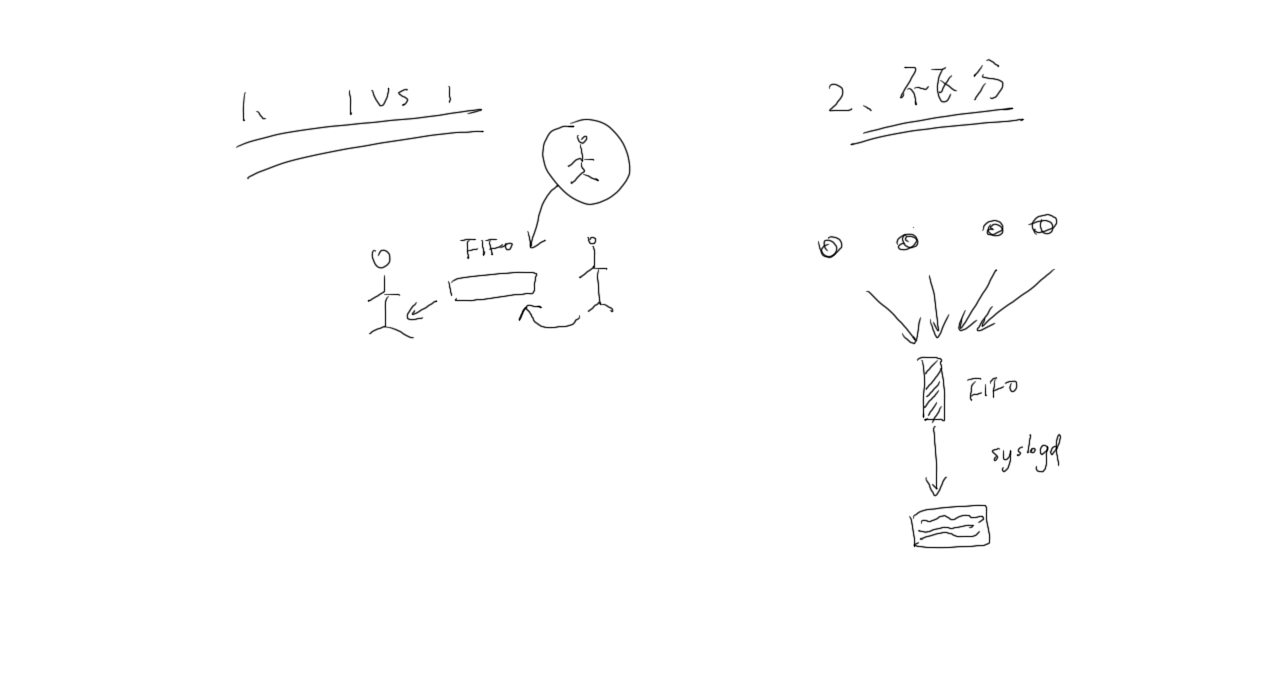 1、 1 VS 1
FIFO
2、不区分
FIFO
syslogd